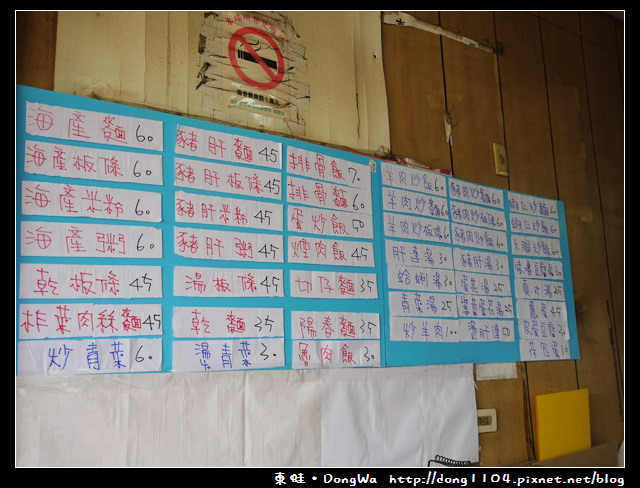 海產麵 60
海產板條 60
海產米粉 60
海產粥 60
乾板條 45
榨菜肉絲麵 45
炒青菜 60
豬肝麵 45
豬肝板條 45
豬肝米粉 45
豬肝粥 45
湯板條 45
乾麵 35
湯青菜 30
排骨飯 70
排骨麵 60
蛋炒飯 50
焢肉飯 45
切仔麵 35
陽春麵 35
魯肉飯 30
羊肉炒飯 60
羊肉炒麵 60
羊肉炒板條 60
肝連湯 30
蛤蜊湯 35
青菜湯 25
炒羊肉 100
豬肉炒飯 60
豬肉炒麵 60
豬肝湯 30
蛋花湯 25
紫菜蛋花湯 25
燙肝連 50
貢丸湯 25
皮蛋豆腐 30
荷包蛋 10
東旺·DongWa http://dong1104.pixnet.net/blog